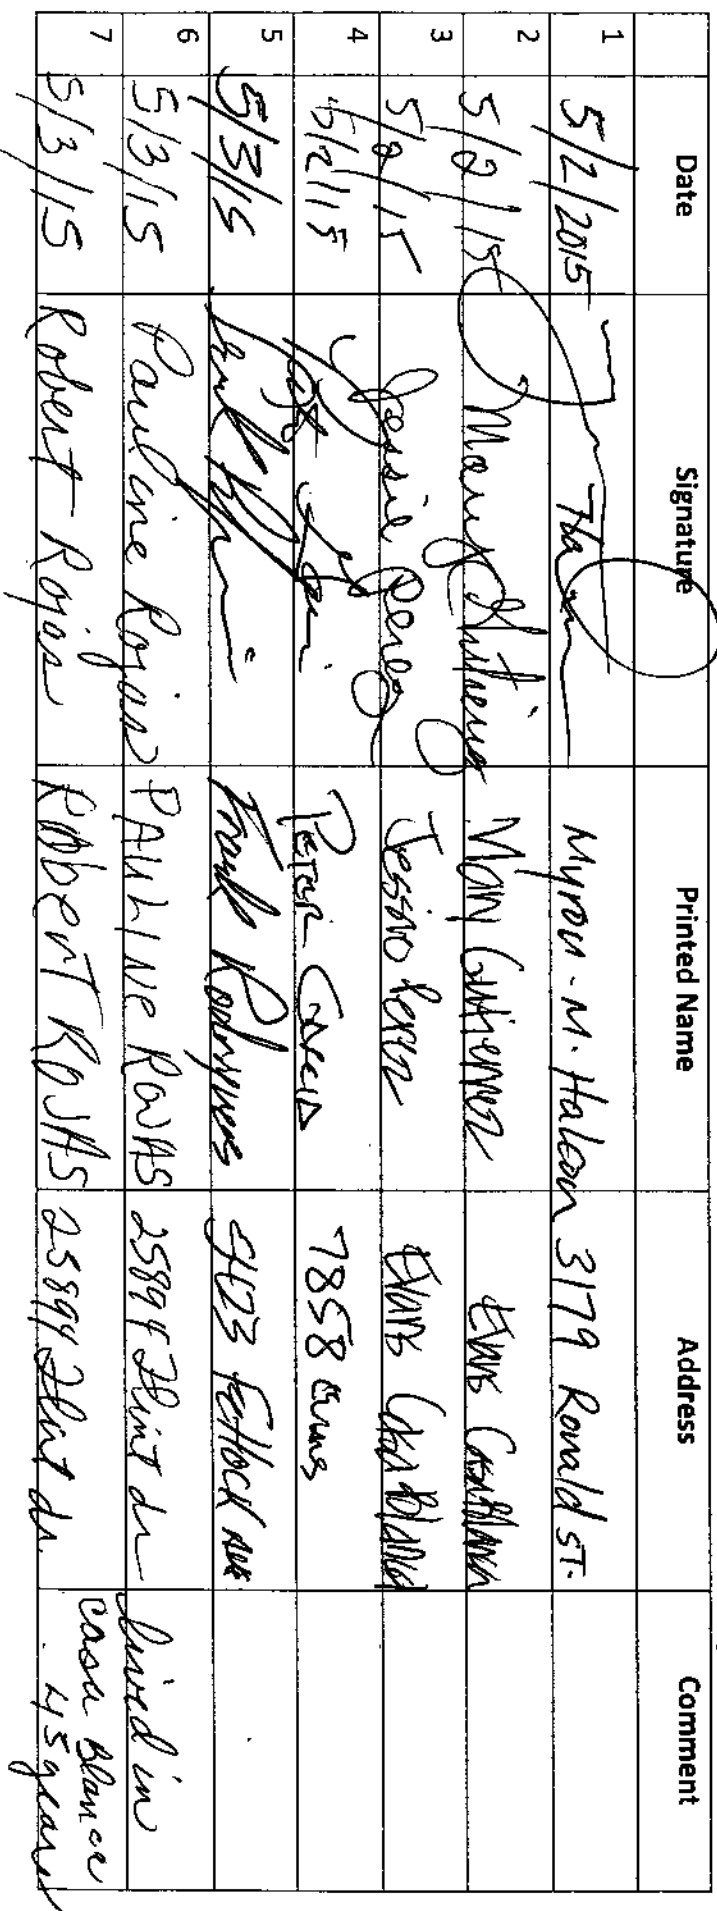 Date Signature Printed Name Address Comment
1 5/2/2015 Myron-M. Halcon 3179 Ronald ST.
2 5/2/15 Mary Gutierrez Mary Gutierrez Evans Casa Blanca
3 5/2/15 Jessie Perez Jessie Perez Evans Casa Blanca
4 5/2/15 Peter Garcia 7858 Evans
5 5/3/15 Frank Rodriguez Fetlock Ave
6 5/3/15 Pauline Rojas PAULINE ROJAS 25894 Flint dr lived in
7 5/3/15 Robert Rojas RobERT ROJAS 25894 Flint dr. casa Blanca
45 years